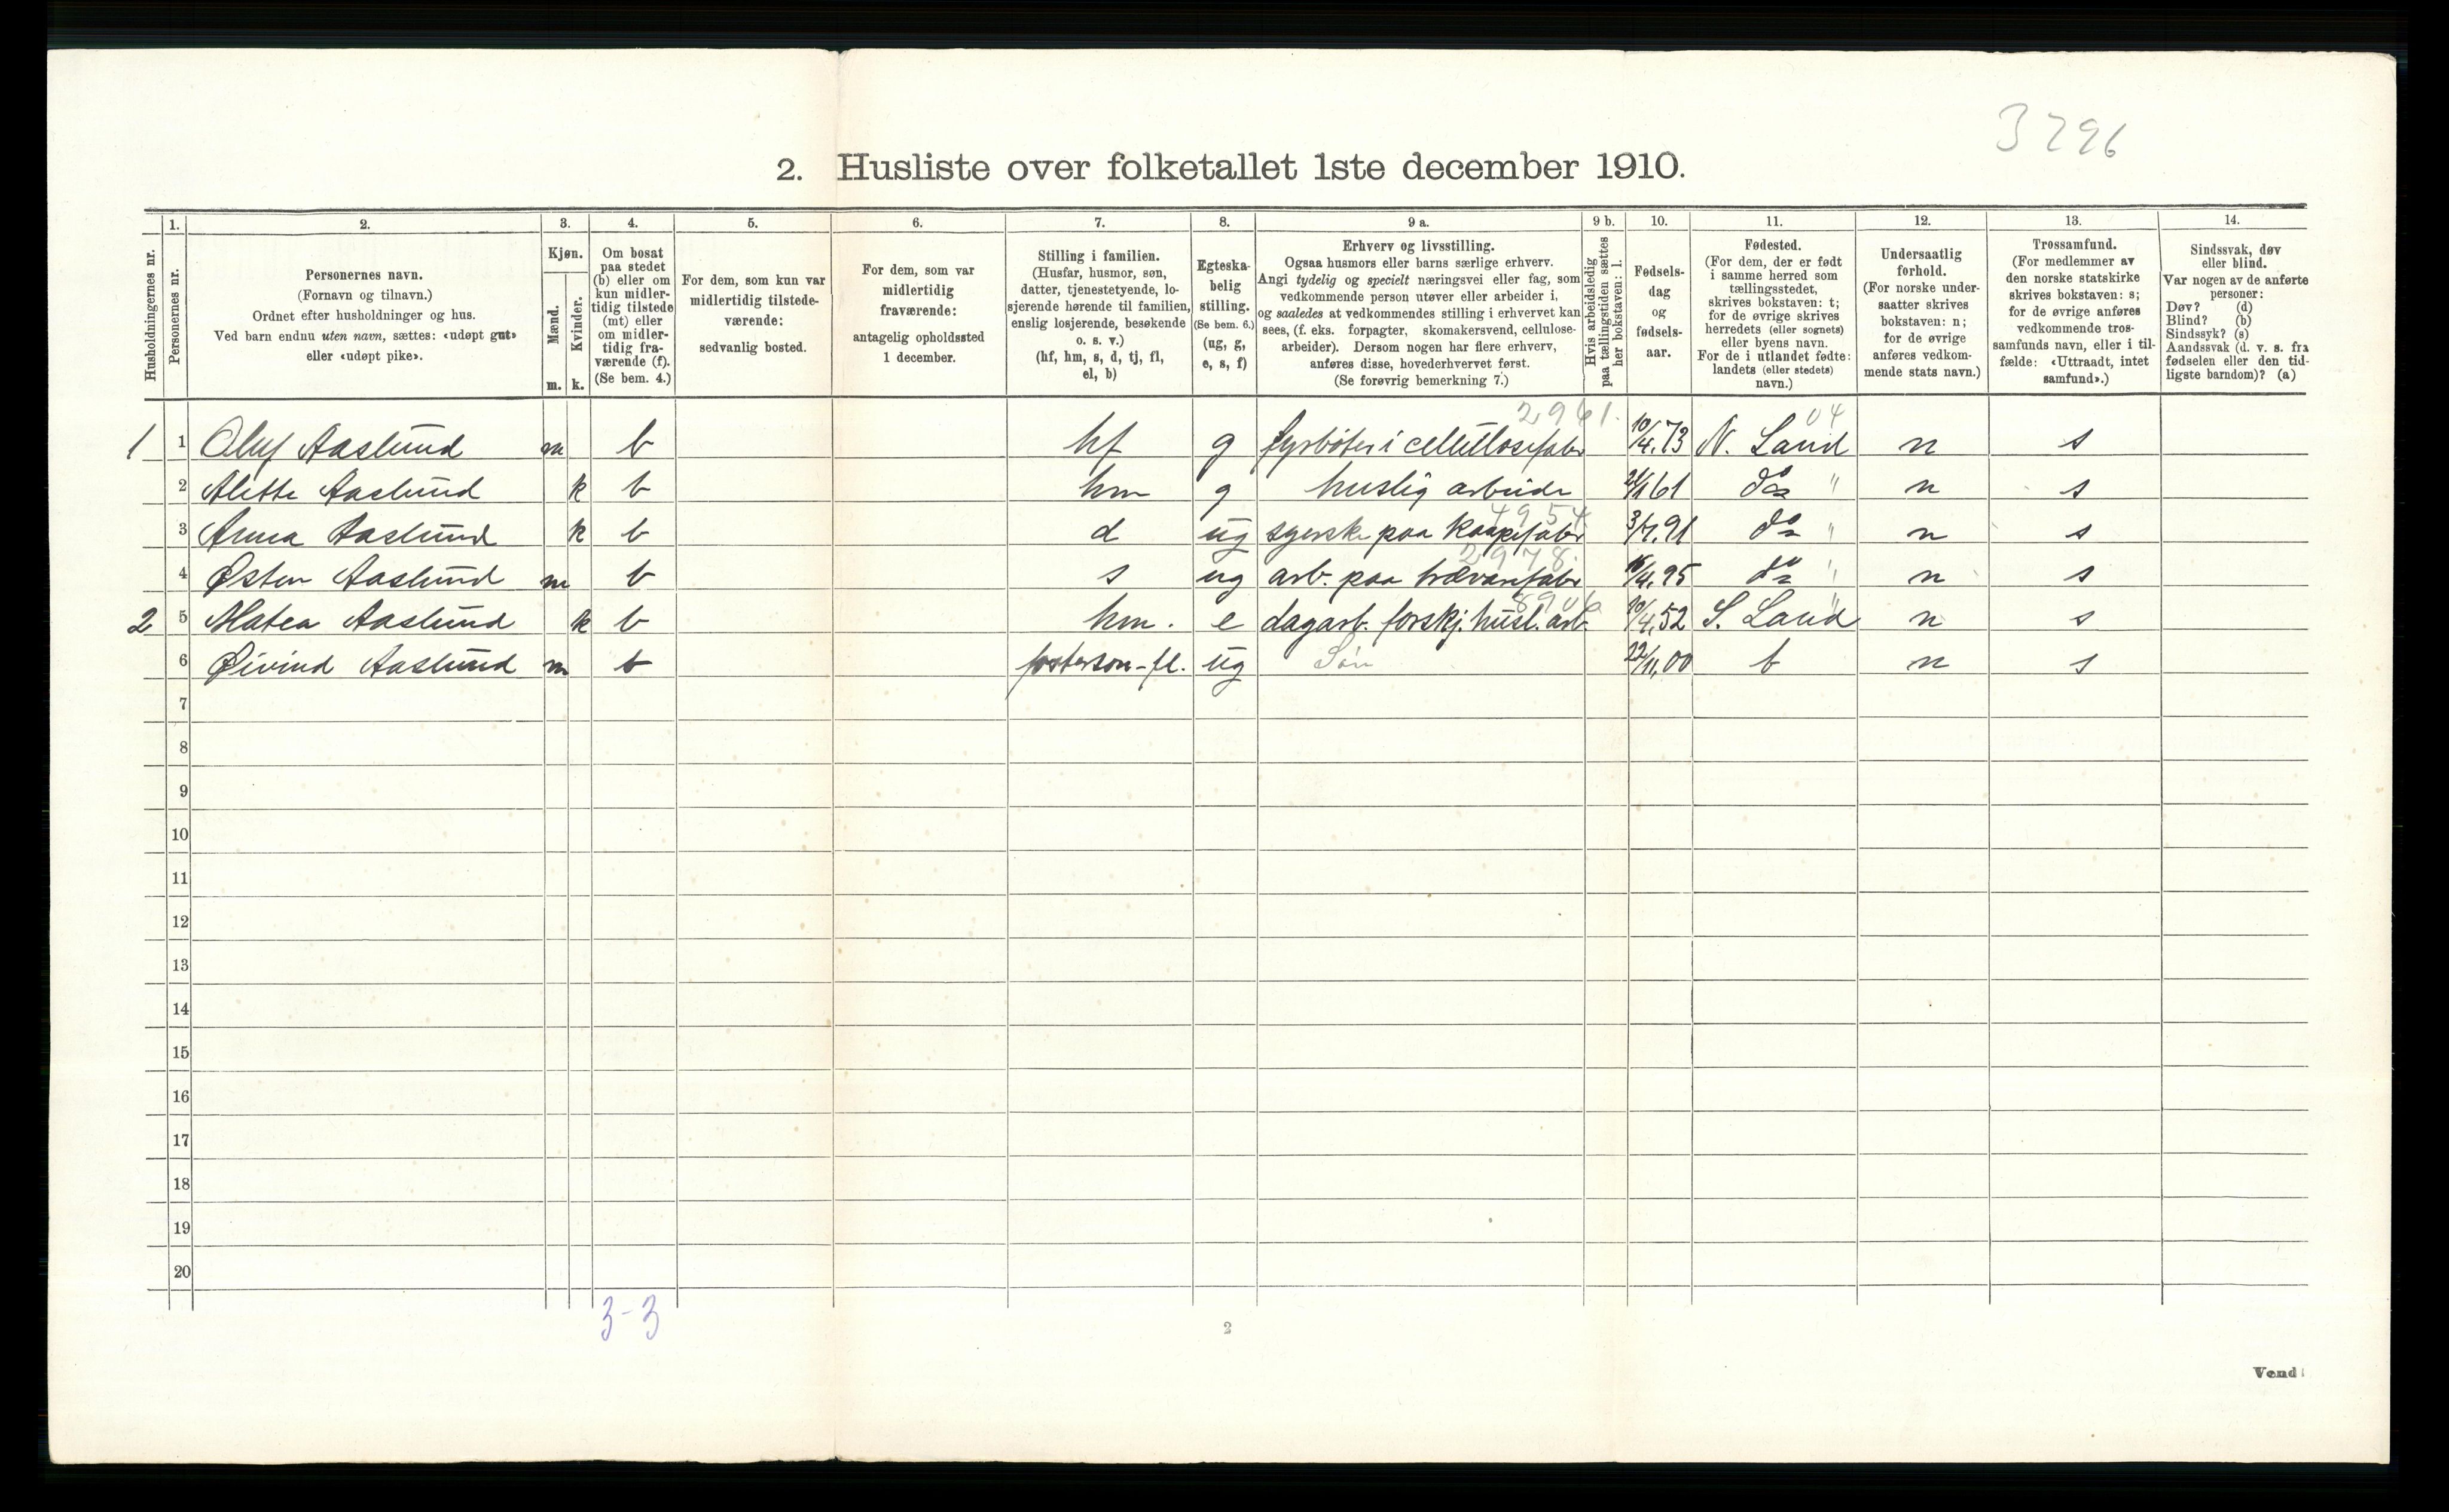 3296
2. Husliste over folketallet 1ste december 1910.
Husholdningernes nr.
1.
Personernes nr.
2.
Personernes navn.
(Fornavn og tilnavn.)
Ordnet efter husholdninger og hus.
Ved barn endnu uten navn, sættes: «udøpt gut»
eller «udøpt pike».
3.
Kjøn.
Mænd.
m.
Kvinder.
k.
4.
Om bosat
paa stedet
(b) eller om
kun midler-
tidig tilstede
(mt) eller
om midler-
tidig fra-
værende (f).
(Se bem. 4.)
5.
For dem, som kun var
midlertidig tilstede-
værende:
sedvanlig bosted.
6.
For dem, som var
midlertidig
fraværende:
antagelig opholdssted
1 december.
7.
Stilling i familien.
(Husfar, husmor, søn,
datter, tjenestetyende, lo-
sjerende hørende til familien,
enslig losjerende, besøkende
o. s. v.)
(hf, hm, s, d, tj, fl,
el, b)
8.
Egteska-
belig
stilling.
(Se bem. 6.)
(ug, g,
e, s, f)
9 a.
Erhverv og livsstilling.
Ogsaa husmors eller barns særlige erhverv.
Angi tydelig og specielt næringsvei eller fag, som
vedkommende person utøver eller arbeider i,
og saaledes at vedkommendes stilling i erhvervet kan
sees, (f. eks. forpagter, skomakersvend, cellulose-
arbeider). Dersom nogen har flere erhverv,
anføres disse, hovederhvervet først.
(Se forøvrig bemerkning 7.)
9 b.
Hvis arbeidsledig
paa tællingstiden sættes
her bokstaven: l.
10.
Fødsels-
dag
og
fødsels-
aar.
11.
Fødested.
(For dem, der er født
i samme herred som
tællingsstedet,
skrives bokstaven: t;
for de øvrige skrives
herredets (eller sognets)
eller byens navn.
For de i utlandet fødte:
landets (eller stedets)
navn.)
12.
Undersaatlig
forhold.
(For norske under-
saatter skrives
bokstaven: n;
for de øvrige
anføres vedkom-
mende stats navn.)
13.
Trossamfund.
(For medlemmer av
den norske statskirke
skrives bokstaven: s;
for de øvrige anføres
vedkommende tros-
samfunds navn, eller i til-
fælde: «Uttraadt, intet
samfund».)
14.
Sindssvak, døv
eller blind.
Var nogen av de anførte
personer:
Døv? (d)
Blind? (b)
Sindssyk? (s)
Aandssvak (d. v. s. fra
fødselen eller den tid-
ligste barndom)? (a)
2961. 04
1 1 Oluf Aaslund m b hf g fyrbøter i cellulosefabr 10/4.73 N. Land n s
2 Alette Aaslund k b hm g huslig arbeide 61 do " n s
4954
3 Anna Aaslund k b d ug syerske paa kaapefabr 3/7.91 do " n s
2978.
4 Østen Aaslund m b s ug arb. paa trævarefabr 16/4.95 do " n s
8906
2 5 Matea Aaslund k b hm. e dagarb. forskj. husl. arb. 10/4.52 S. Land n s
6 Øivind Aaslund m b fosterson-fl. ug Søn 22/11.00 t n s
7
8
9
10
11
12
13
14
15
16
17
18
19
20
3-3
2
Vend!